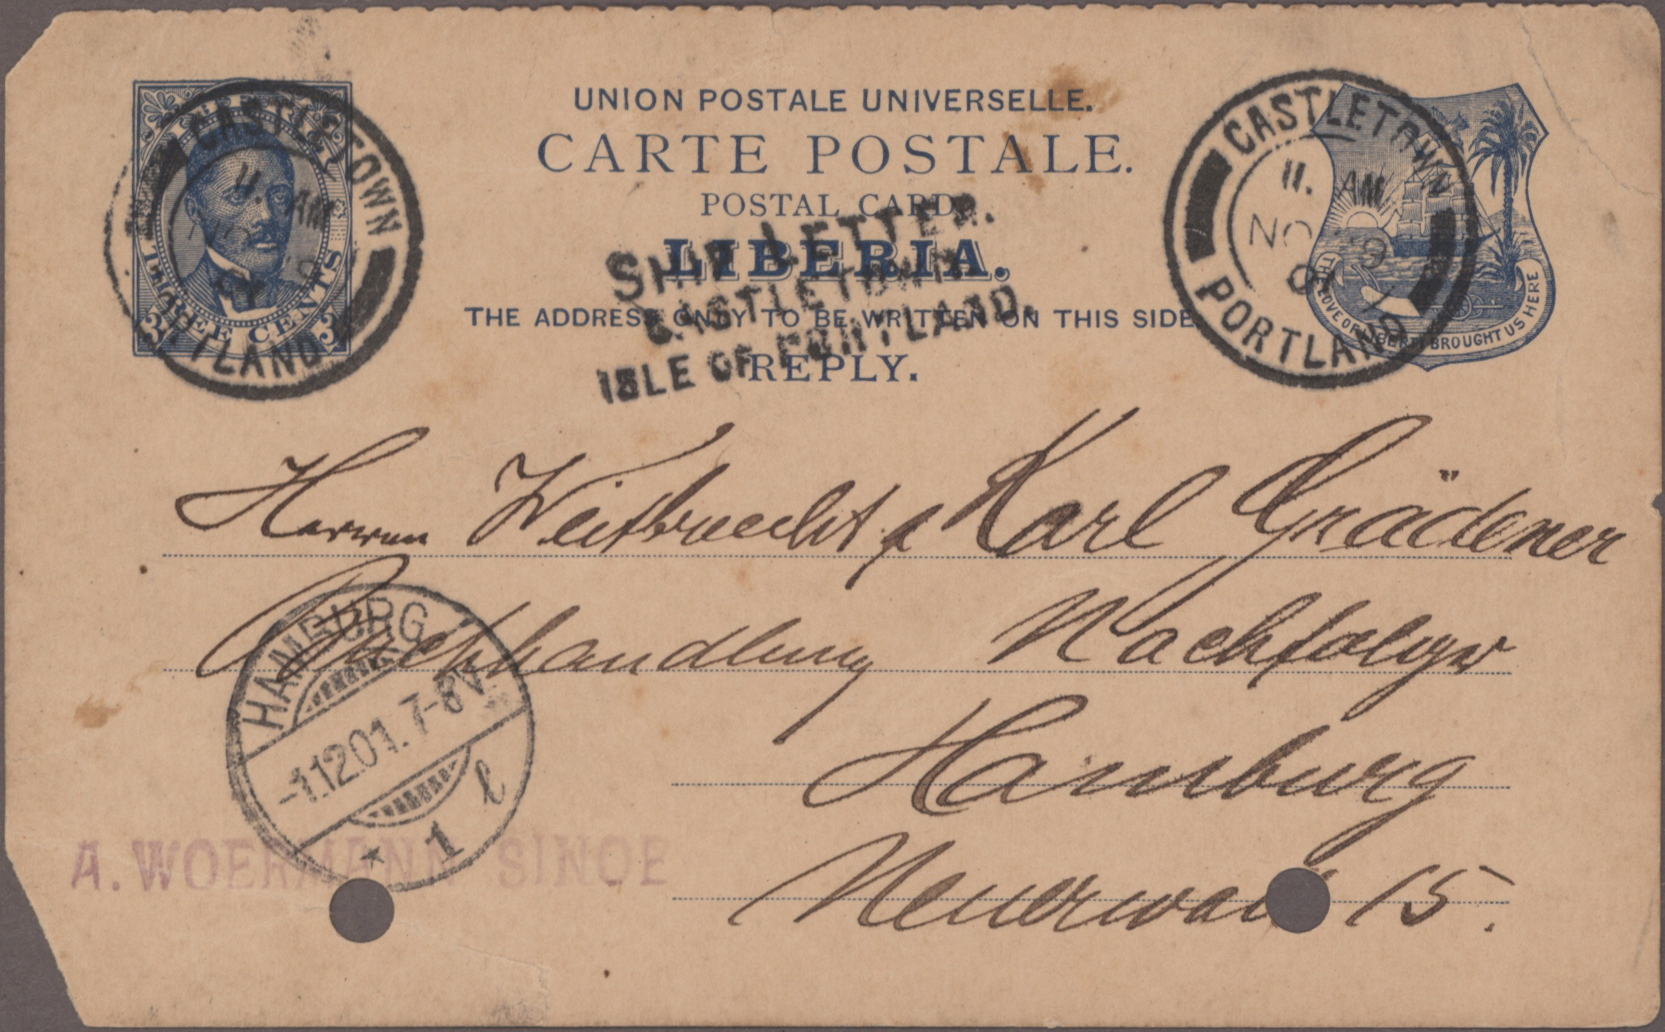 UNION POSTALE UNIVERSELLE.
CARTE POSTALE.
POSTAL CARD.
LIBERIA.
THE ADDRESS ONLY TO BE WRITTEN ON THIS SIDE
REPLY.
LIBERIA
3 THREE CENTS 3
CASTLETOWN
11. AM
NO
01
PORTLAND
SHIP LETTER.
CASTLETOWN
ISLE OF PORTLAND.
CASTLETOWN
11. AM
NO 29
01
PORTLAND
THE LOVE OF LIBERTY BROUGHT US HERE
Herren Weitbrecht & Karl Grädener
Buchhandlung Nachfolger
Hamburg
Neuerwall 15.
HAMBURG
-1.12.01. 7-8V.
* 1 l
A. WOERMANN SINOE